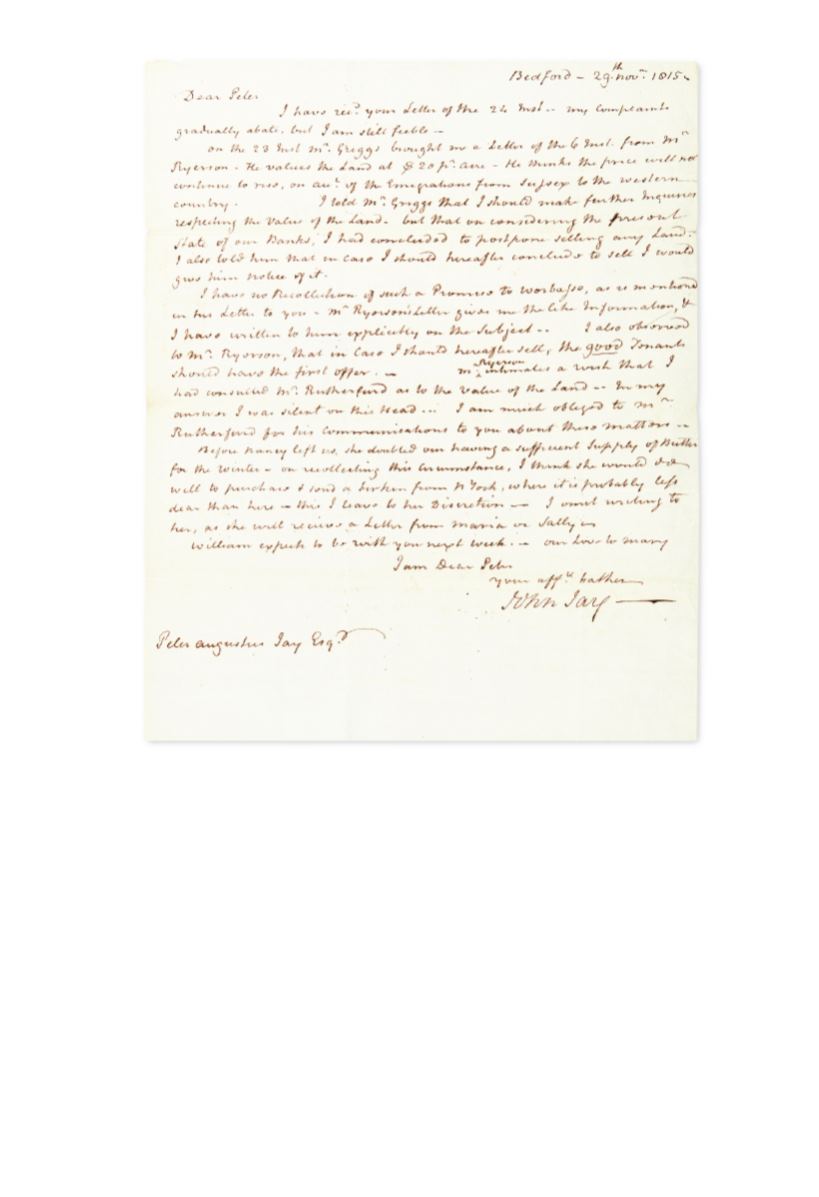 Bedford – 29th novr. 1815 –
Dear Peter
I have recd. your Letter of the 24 Inst – my Complaints
gradually abate, but I am still feeble –
on the 23 Inst Mr. Griggs brought me a Letter of the 6 Inst. from Mr
Ryerson – He values the Land at $20 pr. acre – He thinks the price will not
continue to rise, on acct. of the Emigrations from Sussex to the western
country. I told Mr. Griggs that I should make further Inquiries
respecting the value of the Land – but that on considering the present
State of our Banks, I had concluded to postpone selling any Land.
I also told him that in case I should hereafter conclude to sell I would
give him notice of it.
I have no Recollection of such a Promise to Worbasse, as is mentioned
in his Letter to you – Mr Ryerson's Letter gives me the like Information, &
I have written to him explicitly on the Subject – I also observed
to Mr. Ryerson, that in Case I should hereafter sell, the good Tenants
should have the first offer. – Mr. Ryerson intimates a wish that I
had consulted Mr. Rutherfurd as to the value of the Land – In my
answer I was silent on this Head – I am much obliged to Mr
Rutherfurd for his Communications to you about these matters –
Before Nancy left us, she doubted our having a sufficient Supply of Butter
for the winter – on recollecting this Circumstance, I think she would do
well to purchase & send a firkin from N York, where it is probably less
dear than here – this I leave to her Discretion – I omit writing to
her, as she will recieve a Letter from Maria or Sally –
William expects to be with you next week – our Love to Mary
I am Dear Peter
your afft. Father
John Jay
Peter Augustus Jay Esqr.